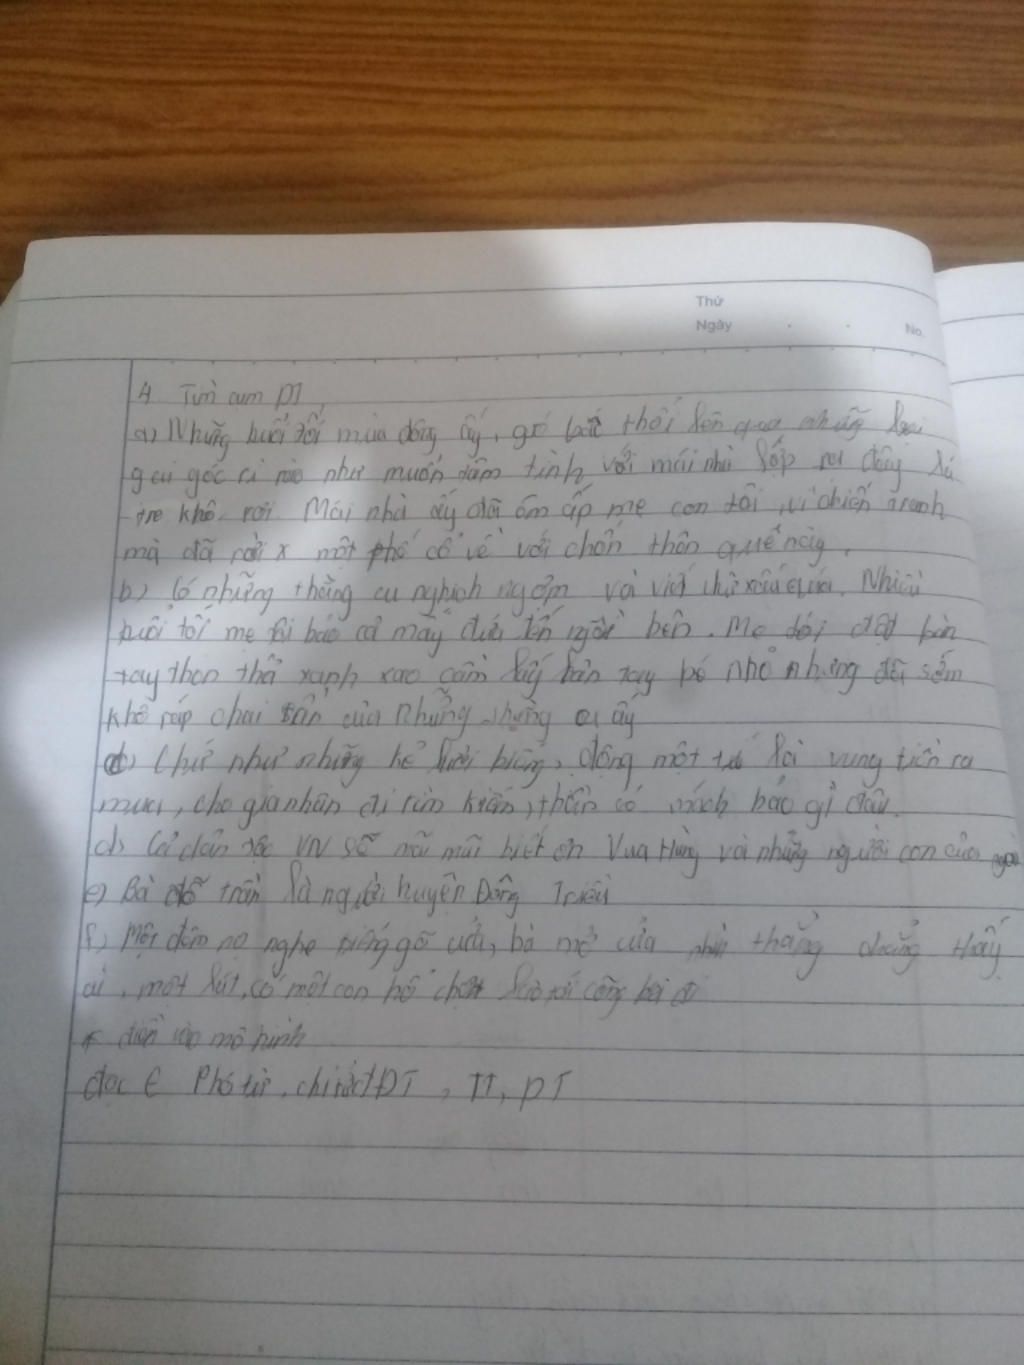 Thứ
Ngày
No.
4 Tìm cụm DT
a) Những buổi tối mùa đông ấy, gió bấc thổi lên qua những
gai góc rì rào như muốn tâm tình với mái nhà lớp rơi đầy lá
tre khô rơi. Mái nhà ấy đã ôm ấp mẹ con tôi, vì chiến tranh
mà đã rời x một phố cổ về với chốn thôn quê này.
b) Có những thằng cu nghịch ngợm và viết chữ xấu quá. Nhiều
buổi tối mẹ tôi bảo cả mấy đứa đến ngồi bên. Mẹ tôi đặt bàn
tay thon thả xanh xao cầm lấy bàn tay bé nhỏ nhưng đã sớm
khô ráp chai sần của những thằng cu ấy
c) Chứ như những kẻ lười biếng, động một tí lại vung tiền ra
mua, cho gia nhân đi tìm kiếm, thần có mách bảo gì đâu.
d) Cả dân tộc VN sẽ mãi mãi biết ơn Vua Hùng và những người con của
e) Bà đỡ trần là người huyện Đông Triều
f) Một đêm nọ nghe tiếng gõ cửa, bà mở cửa nhìn thẳng chẳng thấy
ai, một lát, có một con hổ chợt lao tới cõng bà đi
* điền vào mô hình
đọc Phó từ, chỉ từ, DT, TT, DT